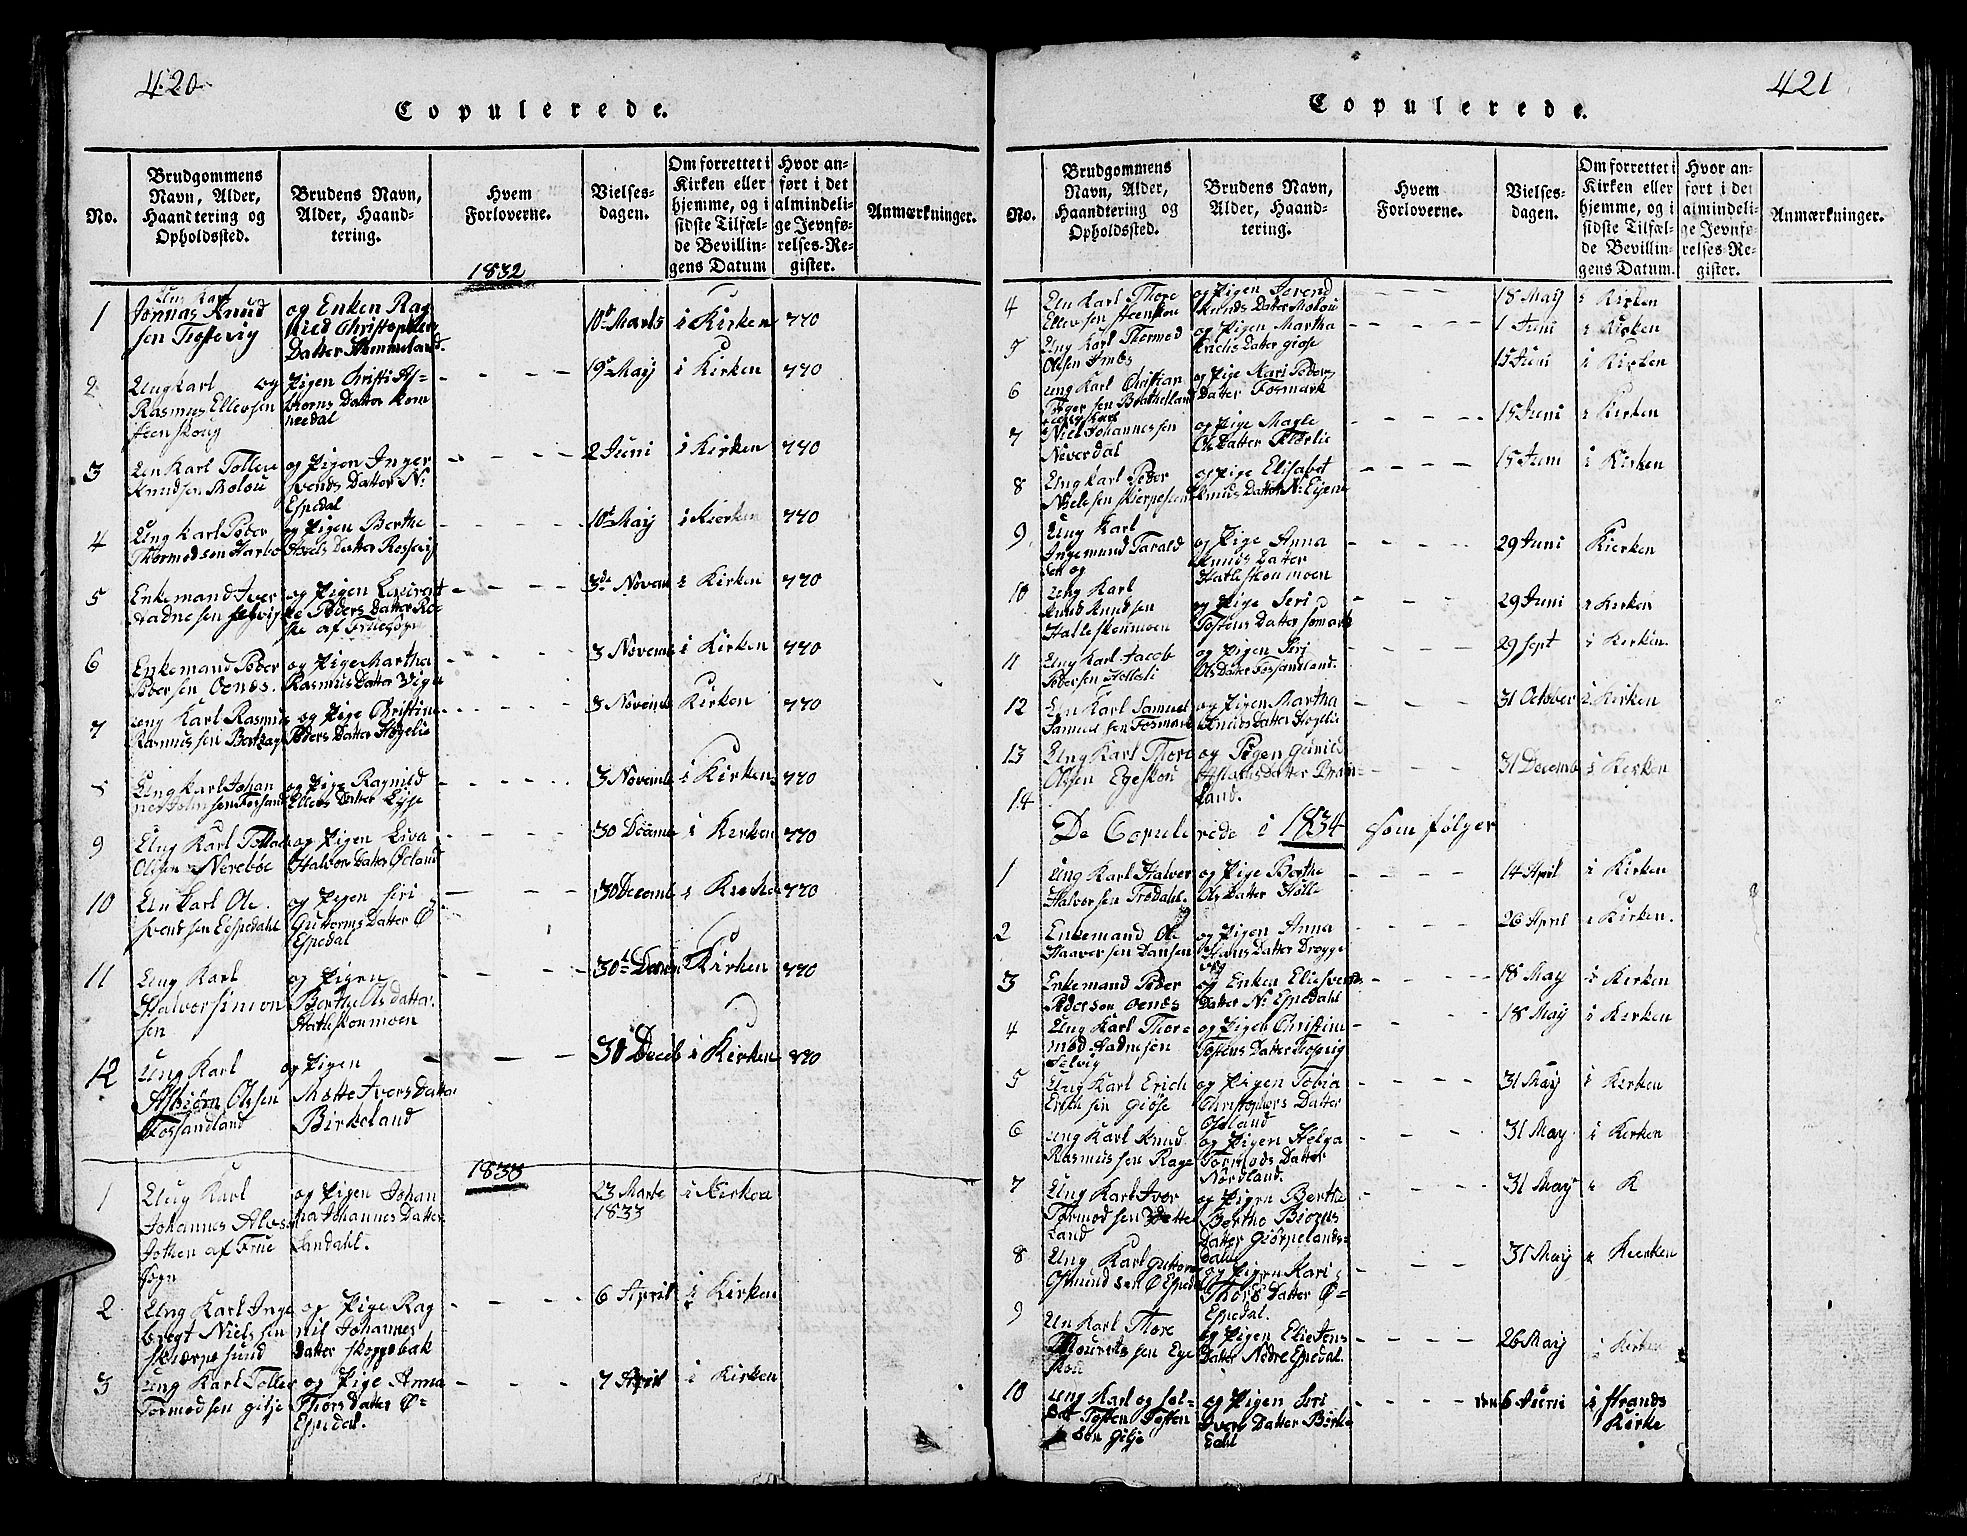 420
Copulerede.
No.
Brudgommens Navn, Alder, Haandtering og Opholdssted.
Brudens Navn, Alder, Haandtering.
Hvem Forloverne.
Vielsesdagen.
Om forrettet i Kirken eller hjemme, og i sidste Tilfælde Bevillingens Datum
Hvor anført i det almindelige Jevnførelses-Register.
Anmærkninger.
1832
1 Ung Karl Jonnas Knudsen og Enken Ragnild Christophers Datter 10de Marts i Kirken 770
2 Ung Karl og Rasmus Ellevsen Steenskoug Pigen Christi Asbiorns Datter Kommedal - - - - 19de May i Kirken 770
3 Un Karl Tollev Knudsen Molou og Pigen Inger Svends Datter N: Espedal - - - - 2 Juni i Kirken 770
4 Ung Karl Peder Thormodsen og Pigen Berthe Datter - - - - 10de May i Kierken 770
5 Enkemand Iver og Pigen Peders Datter af Fruesogn - - - - 3de Novem i Kirken 770
6 Enkemand Peder Pedersen Oenæs. og Pige Martha Rasmus Datter - - - - 3 Novemb i Kirken 770
7 Ung Karl Rasmus Rasmussen og Pige Christine Peders Datter Høgelie - - - - 3 Novemb Kirken 770
Ung Karl Johannes Johnsen Fossand og Pige Ragnild Ellevs Datter Lyse - - - - 3 Novemb i Kirken 770
9 Ung Karl Olsen Nerebøe og Pigen Liva Halvors Datter - - - - 30 i Kirken 770
10 Un Karl Ole Svendsen Espedahl og Pigen Siri Guttorms Datter Ø Espedal - - - 30 Decemb i 770
11 Ung Karl Halvor Simonsen og Pigen Berthe Ols datter Hatleskoumoen - - - 30te Kirken 770
12 Ung Karl Asbiørn Olsen Fossandland og Pigen Mette Ivers Datter Birkeland - - - 30 i Kirken 770
1833
1 Ung Karl Johannes af Frue Sogn og Pigen Johanna Johannes Datter Sandahl. 23 Marts 1833 i Kirken
2 Ung Karl Ingebregt Nielssen Skiørpesund og Pige Ragnil Johannes Datter Skoggebak - - - - 6 April i Kirken
3 Ung Karl Tollev Tormodsen Gilje og Pige Anna Thors Datter Ø= Espedal. - - - - 7 April i Kirken
421
Copulerede.
No.
Brudgommens Navn, Alder, Haandtering og Opholdssted.
Brudens Navn, Alder, Haandtering.
Hvem Forloverne.
Vielsesdagen.
Om forrettet i Kirken eller hjemme, og i sidste Tilfælde Bevillingens Datum.
Hvor anført i det almindelige Jevnførelses-Register.
Anmærkninger.
4 Un Karl Thore Ellevsen Steenskou og Pigen Datter Molou - - - - 18 May i Kirken
5 Ung Karl Thormod Olsen og Pigen Martha Erichs Datter Giøse - - - - 1 Juni i Kirken
6 Ung Karl Christian og Pige Kari Peders Datter Fosmark 15 Juni i Kirken
7 Niels Johannessen Neverdal og Pige Magle Ols Datter - - - - 15 Juni i Kirken
8 Ung Karl Peder Nielsen og Pige Elisabet Knuds Datter N: - - - - 15 Juni i Kirken
9 Ung Karl Ingemund Taraldsen og og Pige Anna Knuds Datter Hatleskoumoen - - - - 29 Juni Kierken
10 Ung Karl Knud Knudsen Hatleskoumoen og Pige Seri Tostens Datter - - - 29 Juni i Kirken
11 Ung Karl Jacob Pedersen Holleli og Pigen Siri Ols Datter Fossandland. - - - 29 Sept i Kirken.
12 Un Karl Samuel Samuelsen Fosmark og Pigen Martha Knuds Datter Høgelie - - - 31 October i Kirken
13 Ung Karl Thore Olsen Egeskou og Pigen Gunild Aslachs Datter Brandland. - - - - 31 Decemb i Kirken
14
De Copulerede i 1834 som følger
1 Ung Karl Halvor Halvorsen Trædahl. og Pige Berthe Ols Datter Holle - - - - 14 April i Kirken
2 Enkemand Ole Haaversen og Pigen Anna Hans Datter - - - 26 April i Kirken.
3 Enkemand Peder Pedersen Oenæs og Enken Elie Svends Datter N: Espedahl - - - - 18 May i Kirken
4 Ung Karl Thormod Selvig og Pigen Christine Tostens Datter - - - - 18 May i Kirken
5 Ung Karl Erich Erichsen Giøse og Pigen Tobia Christophers Datter - - - - 31 May i Kirken
6 Ung Karl Knud Rasmussen Rage og Pigen Helga Tormods Datter Nordland. - - - 31 May i Kirken
7 Ung Karl Iver Tormodsen og Pigen Berthe Bertho Biorns Datter Giørpelandsdahl - - - - 31 May i K
8 Ung Karl Guttorm Osmundsen Ø Espedal og Pigen Kari Thors Datter Ø= Espedal. - - - - 31 May i Kierken
9 Un Karl Thore Mouritssen Egeskou og Pigen Elie Jens Datter Nedre Espedal. - - - - 26 May i Kirken
10 Ung Karl og Soldat Tosten Tostensøn Gilje og Pigen Seri Ivers Datter Birkedahl - - - - den 6 Juni i Strands Kirke